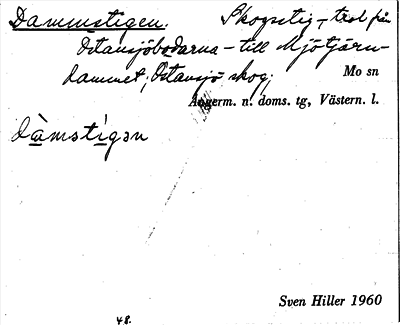 Dammstigen. Skogsstig – trol från
Östansjöbodarna – till Mjötjärn-
dammet; Östansjö skog.
Mo sn
Ångerm. n. doms. tg, Västern. l.
Dàmstigən
Sven Hiller 1960
48.